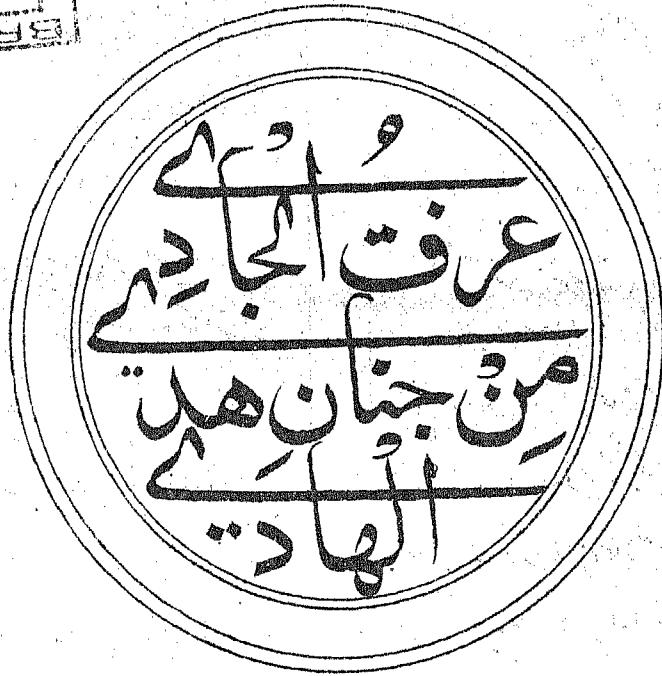 عرف الجادِي
مِنْ جنانِ هدي
الهادي